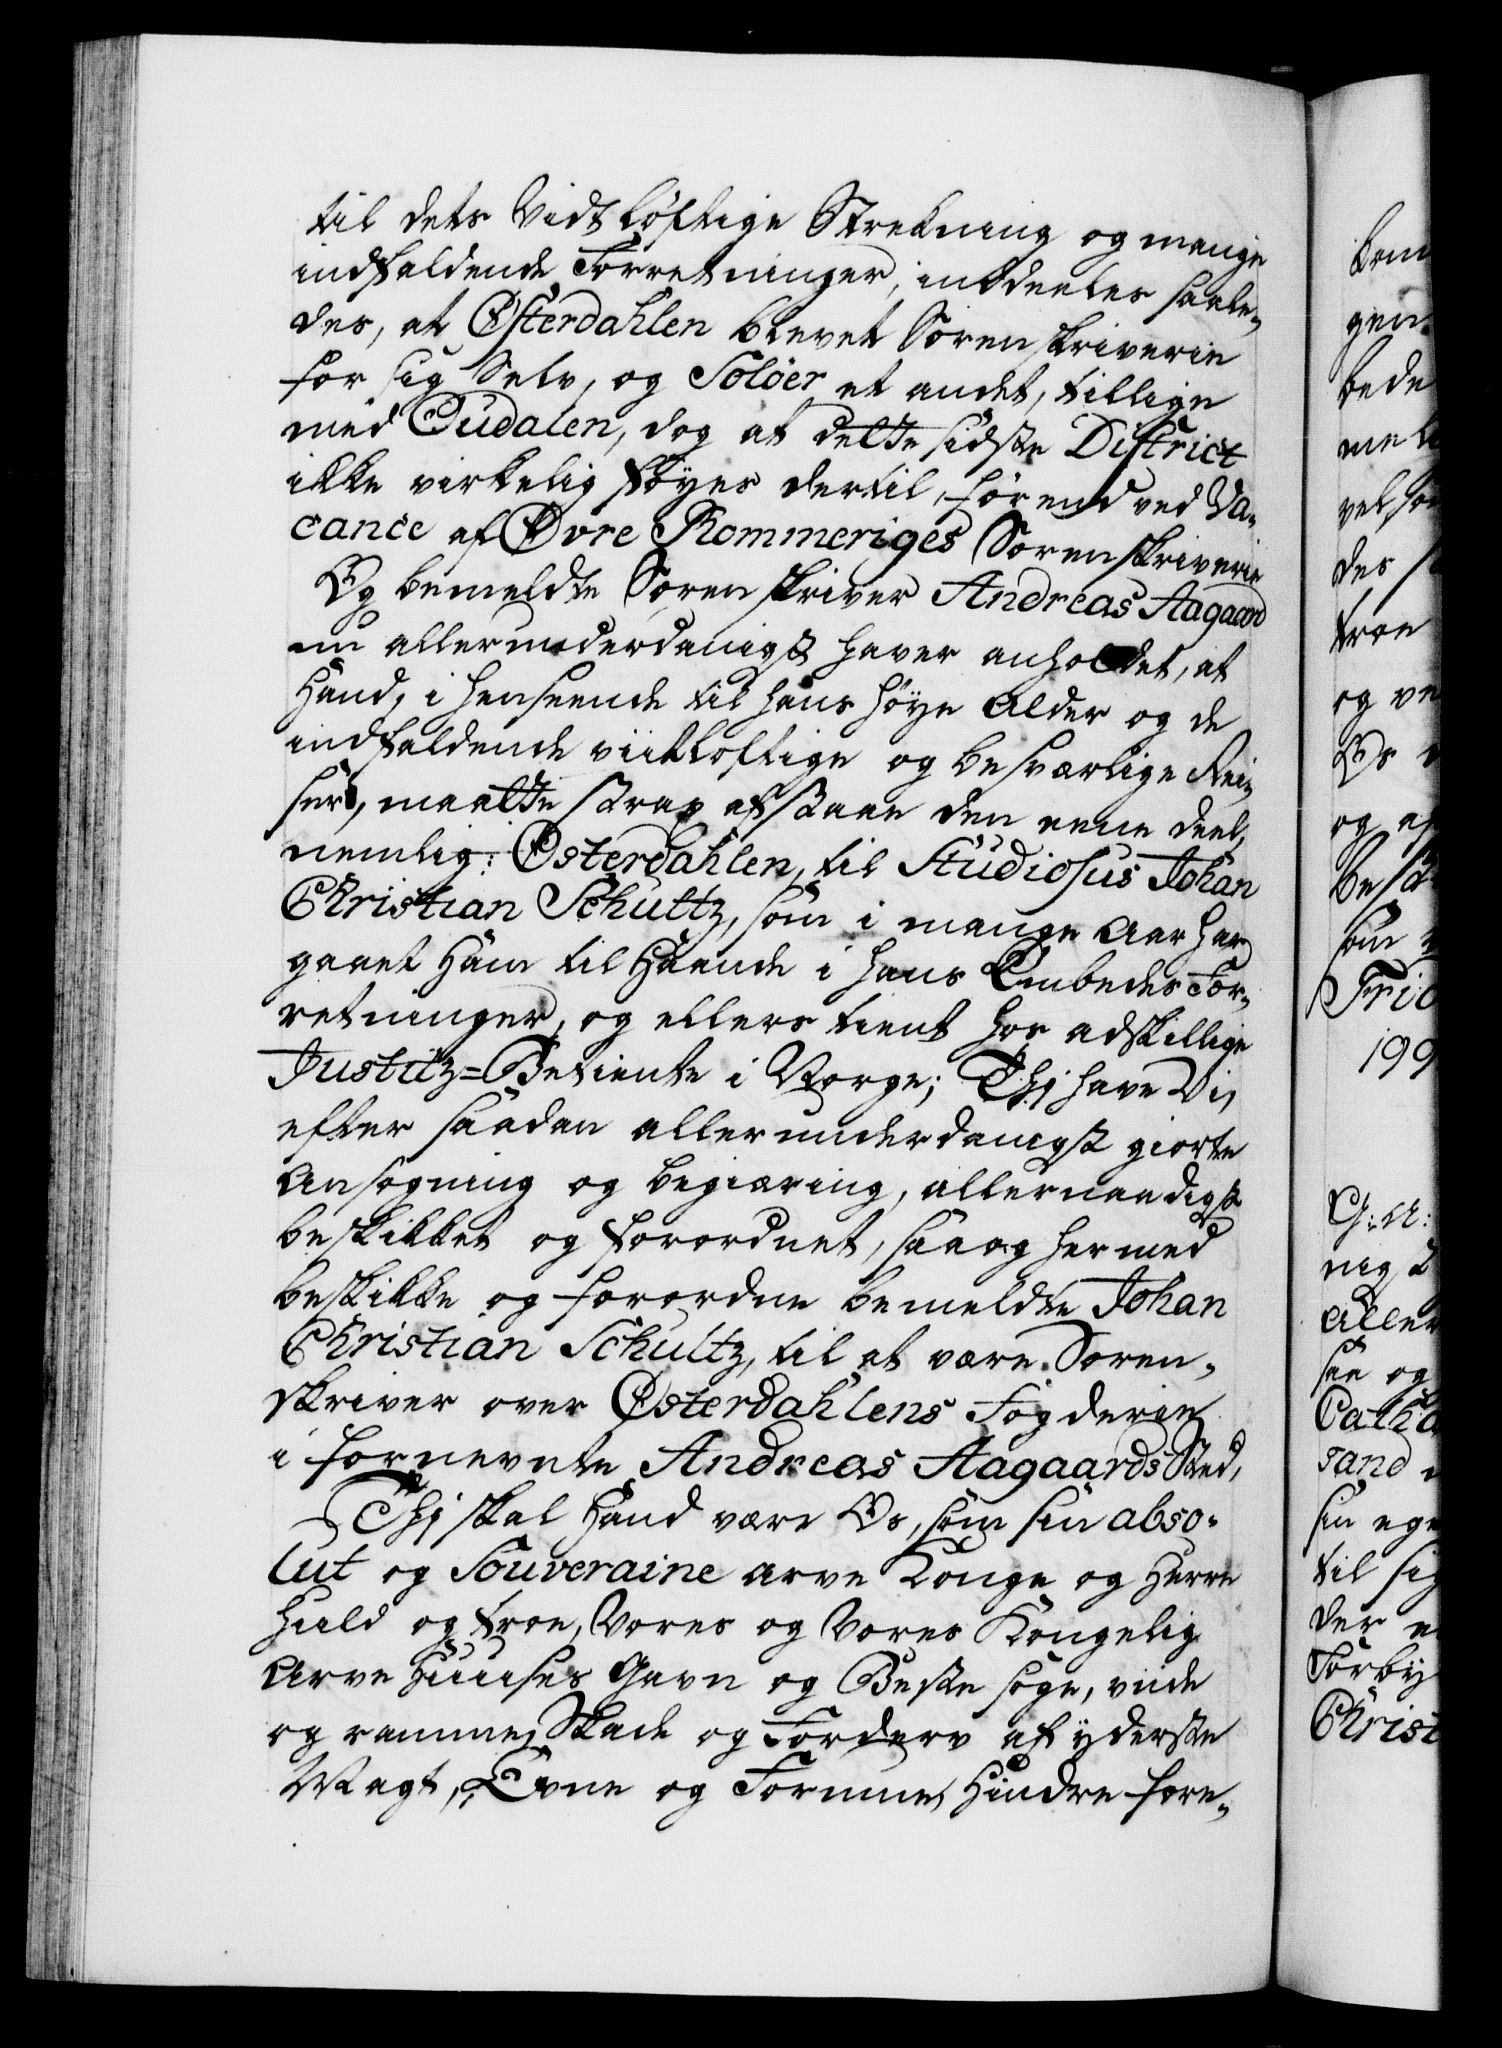 til dets Vidtløftige Strekning og mange
indfaldende Forretninger, inddeeles saale,
des, at Østerdahlen blevet Sorenskriverie
for sig Selv, og Soløer et andet, tillige
med Oudalen, dog at dette sidste District
ikke virkelig føyes dertil, førend ved Va,
cance af Øvre Rommeriges Sorenskriverie
Og bemeldte Sorenskriver Andreas Aagaard
nu allerunderdanigst haver anholdet, at
Hand, i henseende til hans høye Alder og de
indfaldende viitloftige og besværlige Rei,
ser, maatte strax afstaae den eene deel,
nemlig: Østerdahlen, til Studiosus Johan
Christian Schultz, som i mange Aar har
gaaet Ham til Haande i hans Embedes For,
retninger, og ellers tient hos adskillige
Justitz=Betiente i Norge; Thj have Vi,
efter saadan allerunderdanigst giorte
Ansøgning og begiæring, allernaadigst
beskikket og forordnet, saa og hermed
beskikke og forordne bemeldte Johan
Christian Schultz, til at være Soren,
skriver over Østerdahlens Fogderie
i fornevnte Andreas Aagaards Sted,
Thj skal Hand være Os, som sin abso,
lut og Souveraine Arve Konge og Herre
huld og troe, Vores og Vores Kongelig
Arve Huuses Gavn og Beste søge, viide
og ramme, Skade og Forderv af yderste
Magt, Evne og Formue, Hindre fore,
gen
bede
vel
des
troe
og
Os
og af
som
Frid
199
G: A:
nigst
Aller
saa og
Cath
sand
sin
til sig
der
Forby
Christ